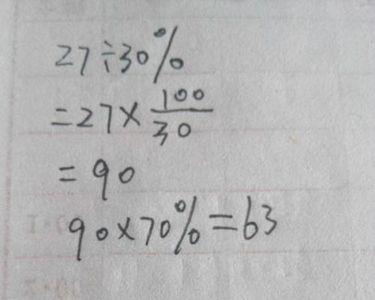 27÷30%
=27×100/30
=90
90×70%=63